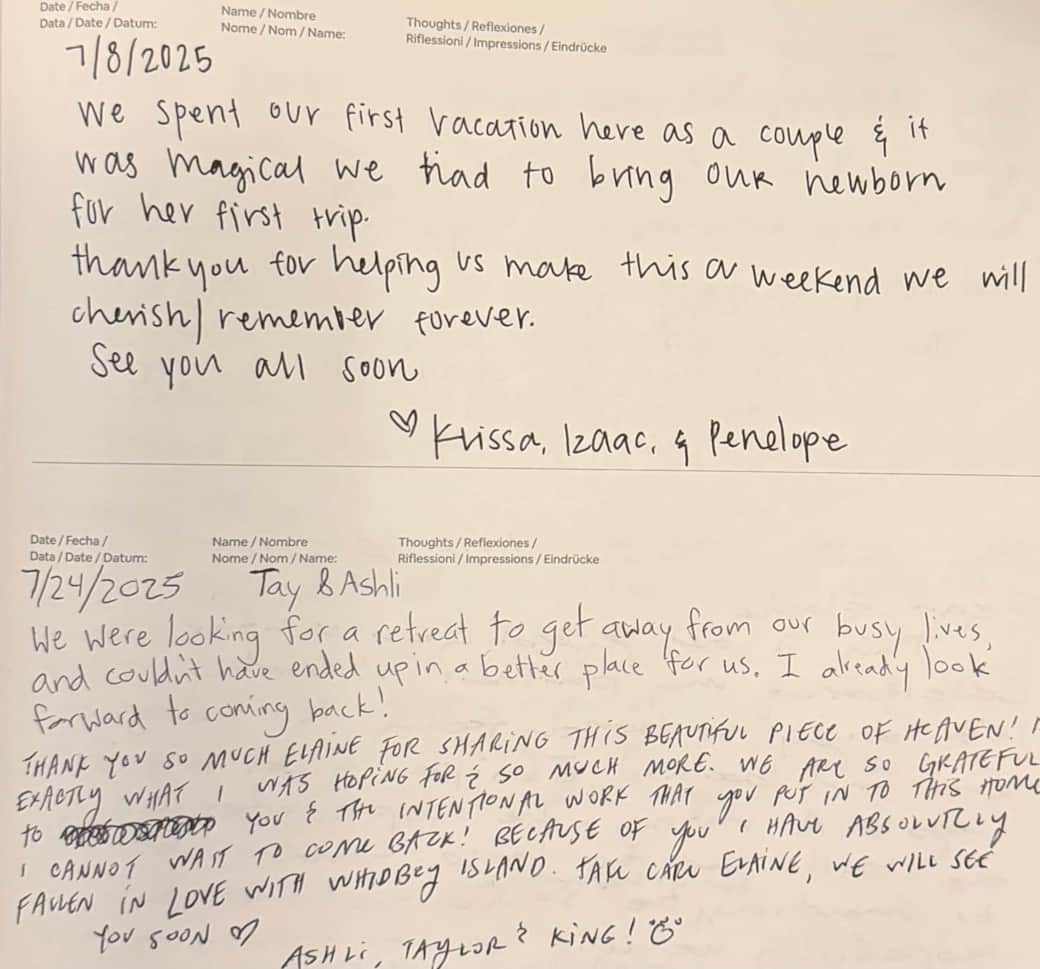 Date / Fecha /
Data / Date / Datum:
Name / Nombre
Nome / Nom / Name:
Thoughts / Reflexiones /
Riflessioni / Impressions / Eindrücke
7/8/2025
We spent our first vacation here as a couple & it
was magical we had to bring our newborn
for her first trip.
thank you for helping us make this a weekend we will
cherish/remember forever.
See you all soon
♡ Krissa, Izaac, & Penelope
Date / Fecha /
Data / Date / Datum:
Name / Nombre
Nome / Nom / Name:
Thoughts / Reflexiones /
Riflessioni / Impressions / Eindrücke
7/24/2025 Tay & Ashli
We were looking for a retreat to get away from our busy lives,
and couldn't have ended up in a better place for us. I already look
forward to coming back!
THANK YOU SO MUCH ELAINE FOR SHARING THIS BEAUTIFUL PIECE OF HEAVEN!
EXACTLY WHAT I WAS HOPING FOR & SO MUCH MORE. WE ARE SO GRATEFUL
to YOU & THE INTENTIONAL WORK THAT YOU PUT IN TO THIS HOME
I CANNOT WAIT TO COME BACK! BECAUSE OF YOU I HAVE ABSOLUTELY
FALLEN IN LOVE WITH WHIDBEY ISLAND. TAKE CARE ELAINE, WE WILL SEE
YOU SOON ♡
ASHLI, TAYLOR & KING!